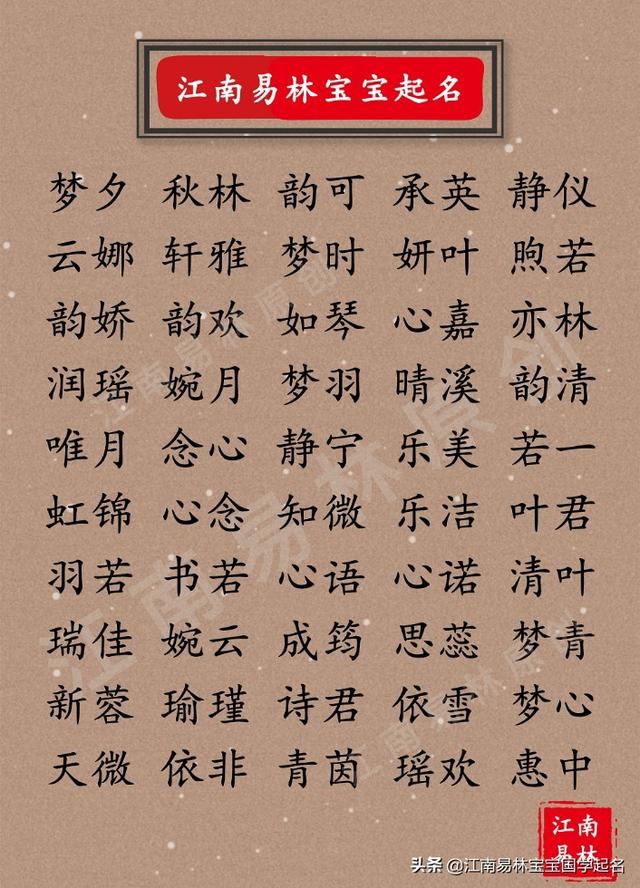 江南易林宝宝起名
梦夕 秋林 韵可 承英 静仪
云娜 轩雅 梦时 妍叶 煦若
韵娇 韵欢 如琴 心嘉 亦林
润瑶 婉月 梦羽 晴溪 韵清
唯月 念心 静宁 乐美 若一
虹锦 心念 知微 乐洁 叶君
羽若 书若 心语 心诺 清叶
瑞佳 婉云 成筠 思蕊 梦青
新蓉 瑜瑾 诗君 依雪 梦心
天微 依非 青茵 瑶欢 惠中
江南易林原创
江南易林原创
江南易林原创
江南
易林
头条 @江南易林宝宝国学起名